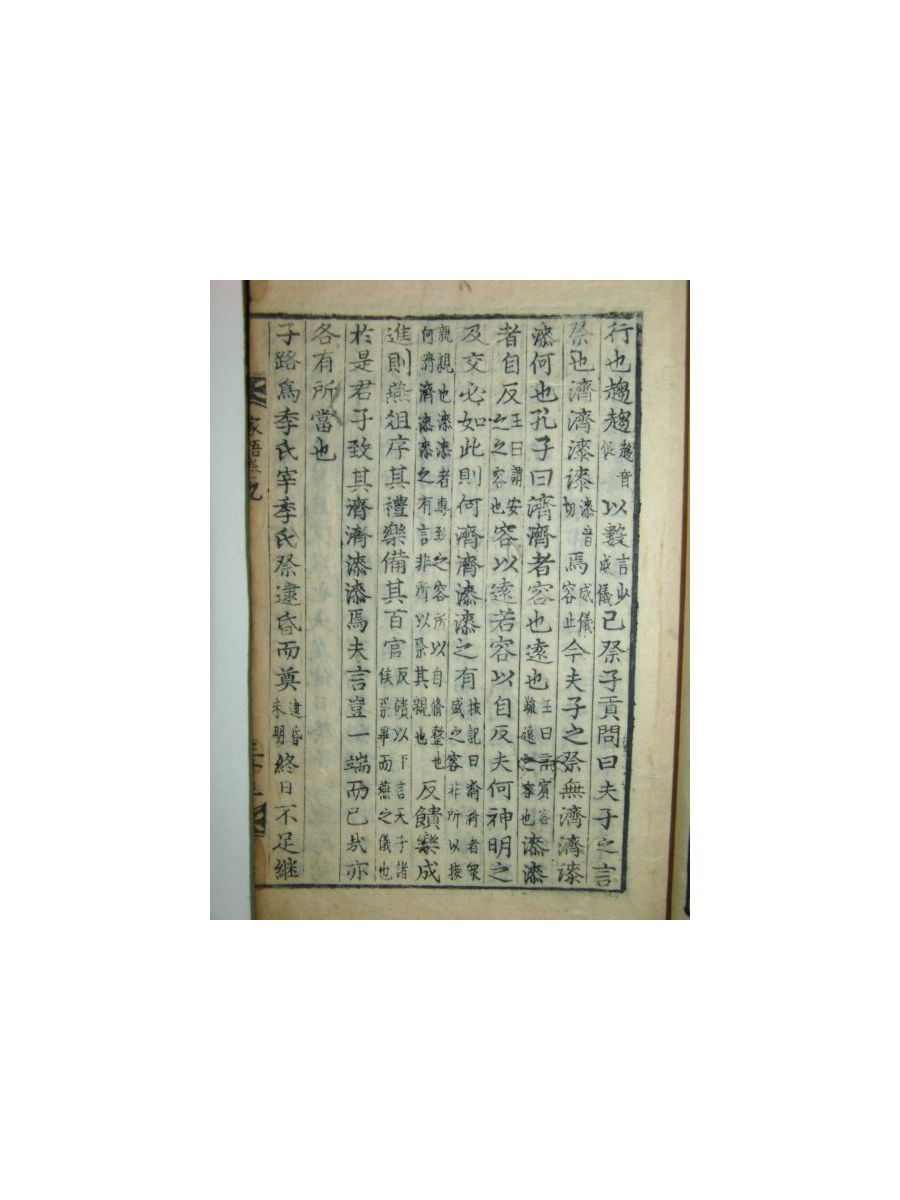 行也趨趨趨音促以數言少威儀已祭子貢問曰夫子之言
祭也濟濟漆漆漆音切焉威儀容止今夫子之祭無濟濟漆
漆何也孔子曰濟濟者容也遠也王曰賓客疏遠之容也漆漆
者自反王曰謂安之之容也容以遠若容以自反夫何神明之
及交必如此則何濟濟漆漆之有按記曰濟濟者衆盛之容非所以接
親親也漆漆者專致之容所以自脩整也何濟濟漆漆之有言非所以祭其親也反饋樂成
進則燕俎序其禮樂備其百官反饋以下言天子諸侯祭畢而燕之儀也
於是君子致其濟濟漆漆焉夫言豈一端而已哉亦
各有所當也
子路爲季氏宰季氏祭逮昏而奠逮昏未明終日不足継
家語卷九